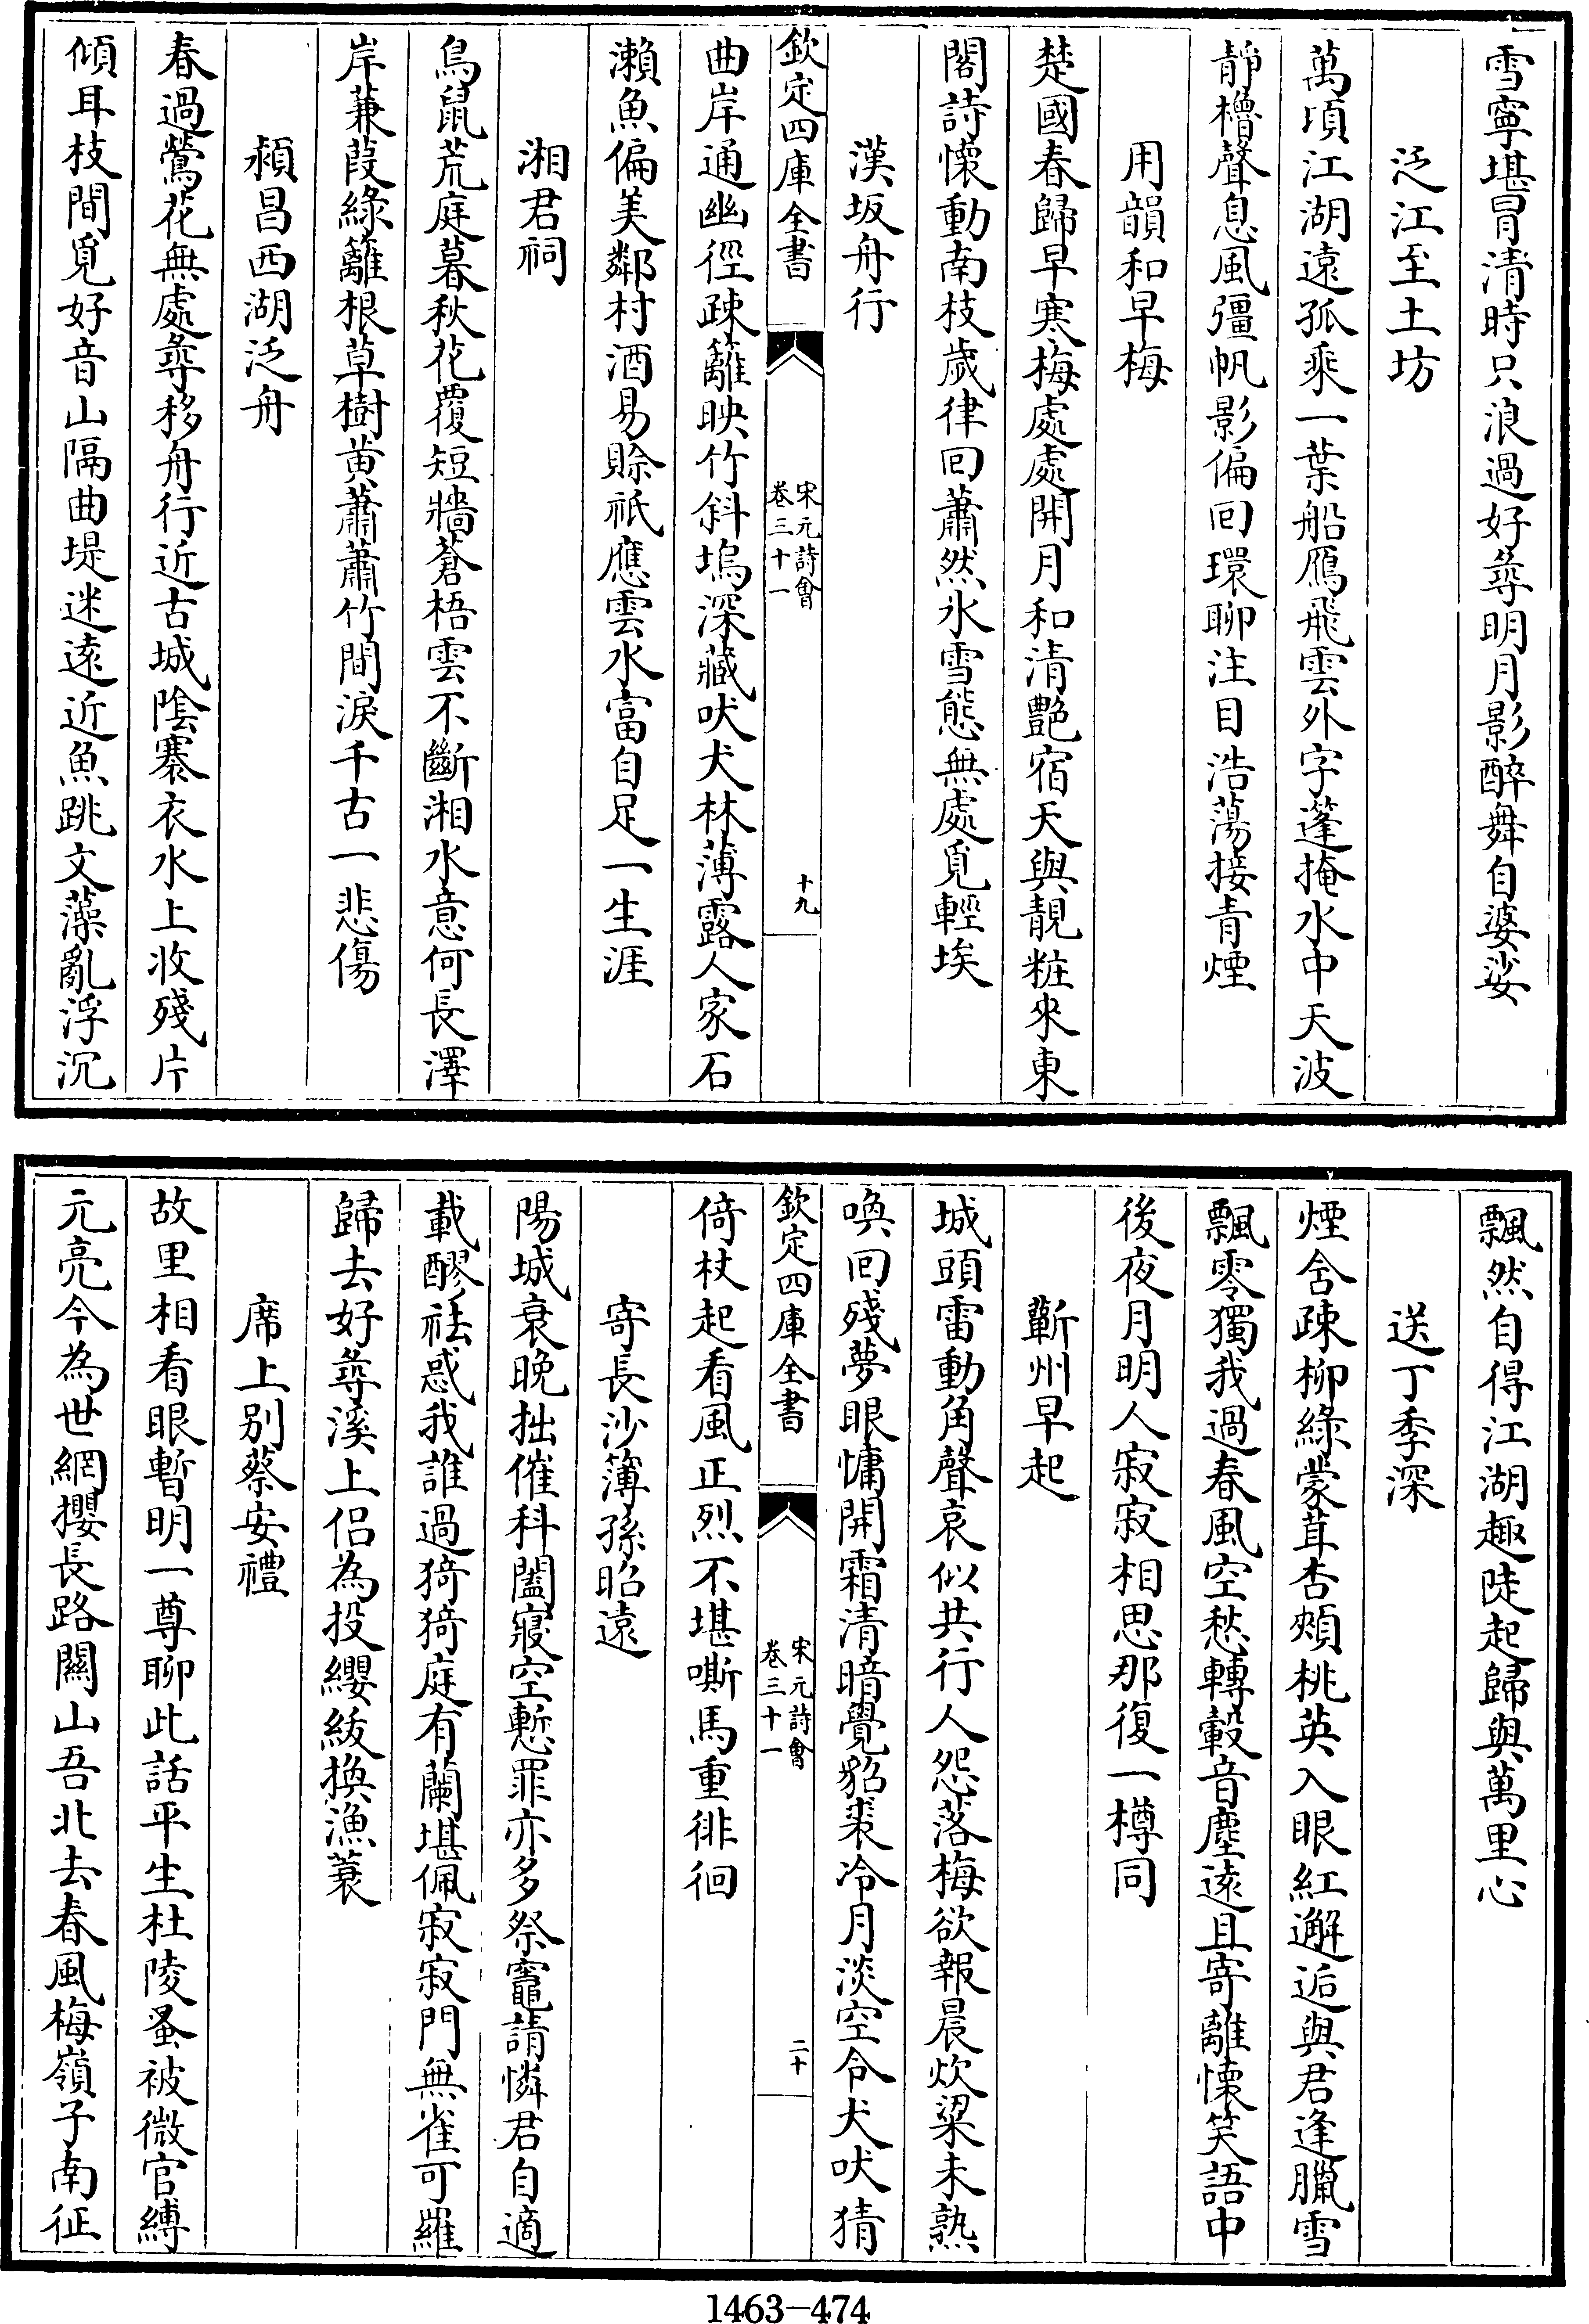 雪寧堪冐清時只浪過好尋明月影醉舞自婆娑
泛江至土坊
萬頃江湖遠孤乘一葉船鴈飛雲外字蓬掩水中天波
靜櫓聲息風彊帆影偏回環聊注目浩蕩接青煙
用韻和早梅
楚國春歸早寒梅處處開月和清艷宿天與靚粧來東
閣詩懷動南枝歲律回蕭然氷雪態無處覓輕埃
漢坂舟行
欽定四庫全書
宋元詩會
卷三十一
十九
曲岸通幽徑疎籬映竹斜塢深藏吠犬林薄露人家石
瀨魚偏美鄰村酒易賒祇應雲水富自足一生涯
湘君祠
鳥鼠荒庭暮秋花覆短牆蒼梧雲不斷湘水意何長澤
岸蒹葭綠籬根草樹黄蕭蕭竹間淚千古一悲傷
潁昌西湖泛舟
春過鶯花無處尋移舟行近古城陰褰衣水上收殘片
傾耳枝間覓好音山隔曲堤迷遠近魚跳文藻亂浮沉
飄然自得江湖趣陡起歸與萬里心
送丁季深
煙舍疎柳綠蒙茸杏頰桃英入眼紅邂逅與君逢臘雪
飄零獨我過春風空愁轉轂音塵遠且寄離懷笑語中
後夜月明人寂寂相思那復一樽同
蘄州早起
城頭雷動角聲哀似共行人怨落梅欲報晨炊粱未熟
喚回殘夢眼慵開霜清暗覺貂裘冷月淡空令犬吠猜
欽定四庫全書
宋元詩會
卷三十一
二十
倚杖起看風正烈不堪嘶馬重徘徊
寄長沙簿孫昭遠
陽城衰晚拙催科闔寢空慙罪亦多祭竈請憐君自適
載醪祛惑我誰過猗猗庭有蘭堪佩寂寂門無雀可羅
歸去好尋溪上侣為投纓紱換漁蓑
席上别蔡安禮
故里相看眼暫明一尊聊此話平生杜陵蚤被微官縛
元亮今為世網攖長路關山吾北去春風梅嶺子南征
1463-474